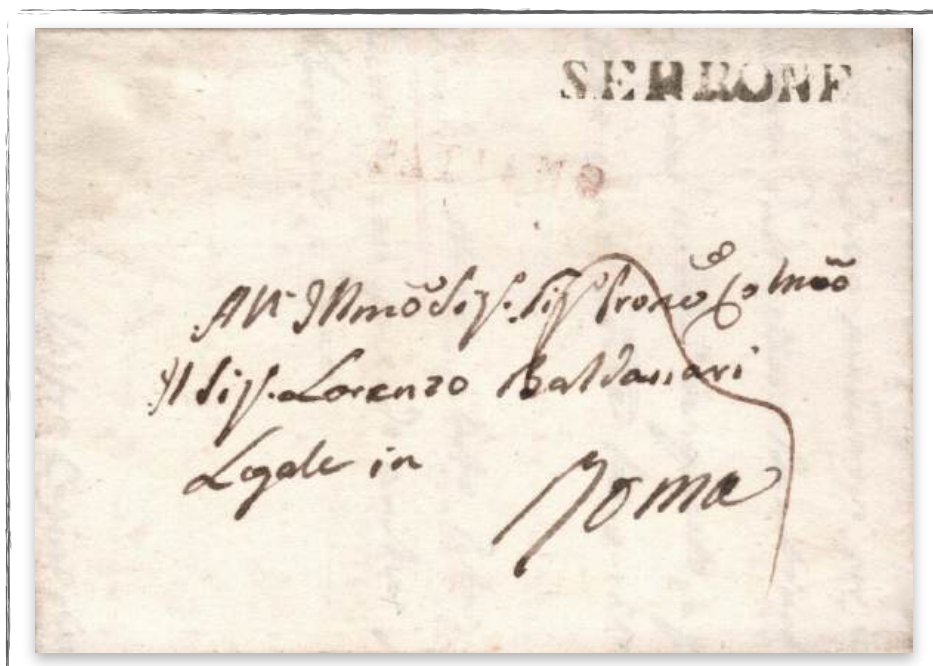 SERRONE
All' Illmõ Sig. Sig. Pronẽ Colmõ
Il Sig. Lorenzo Baldassari
Legale in
Roma